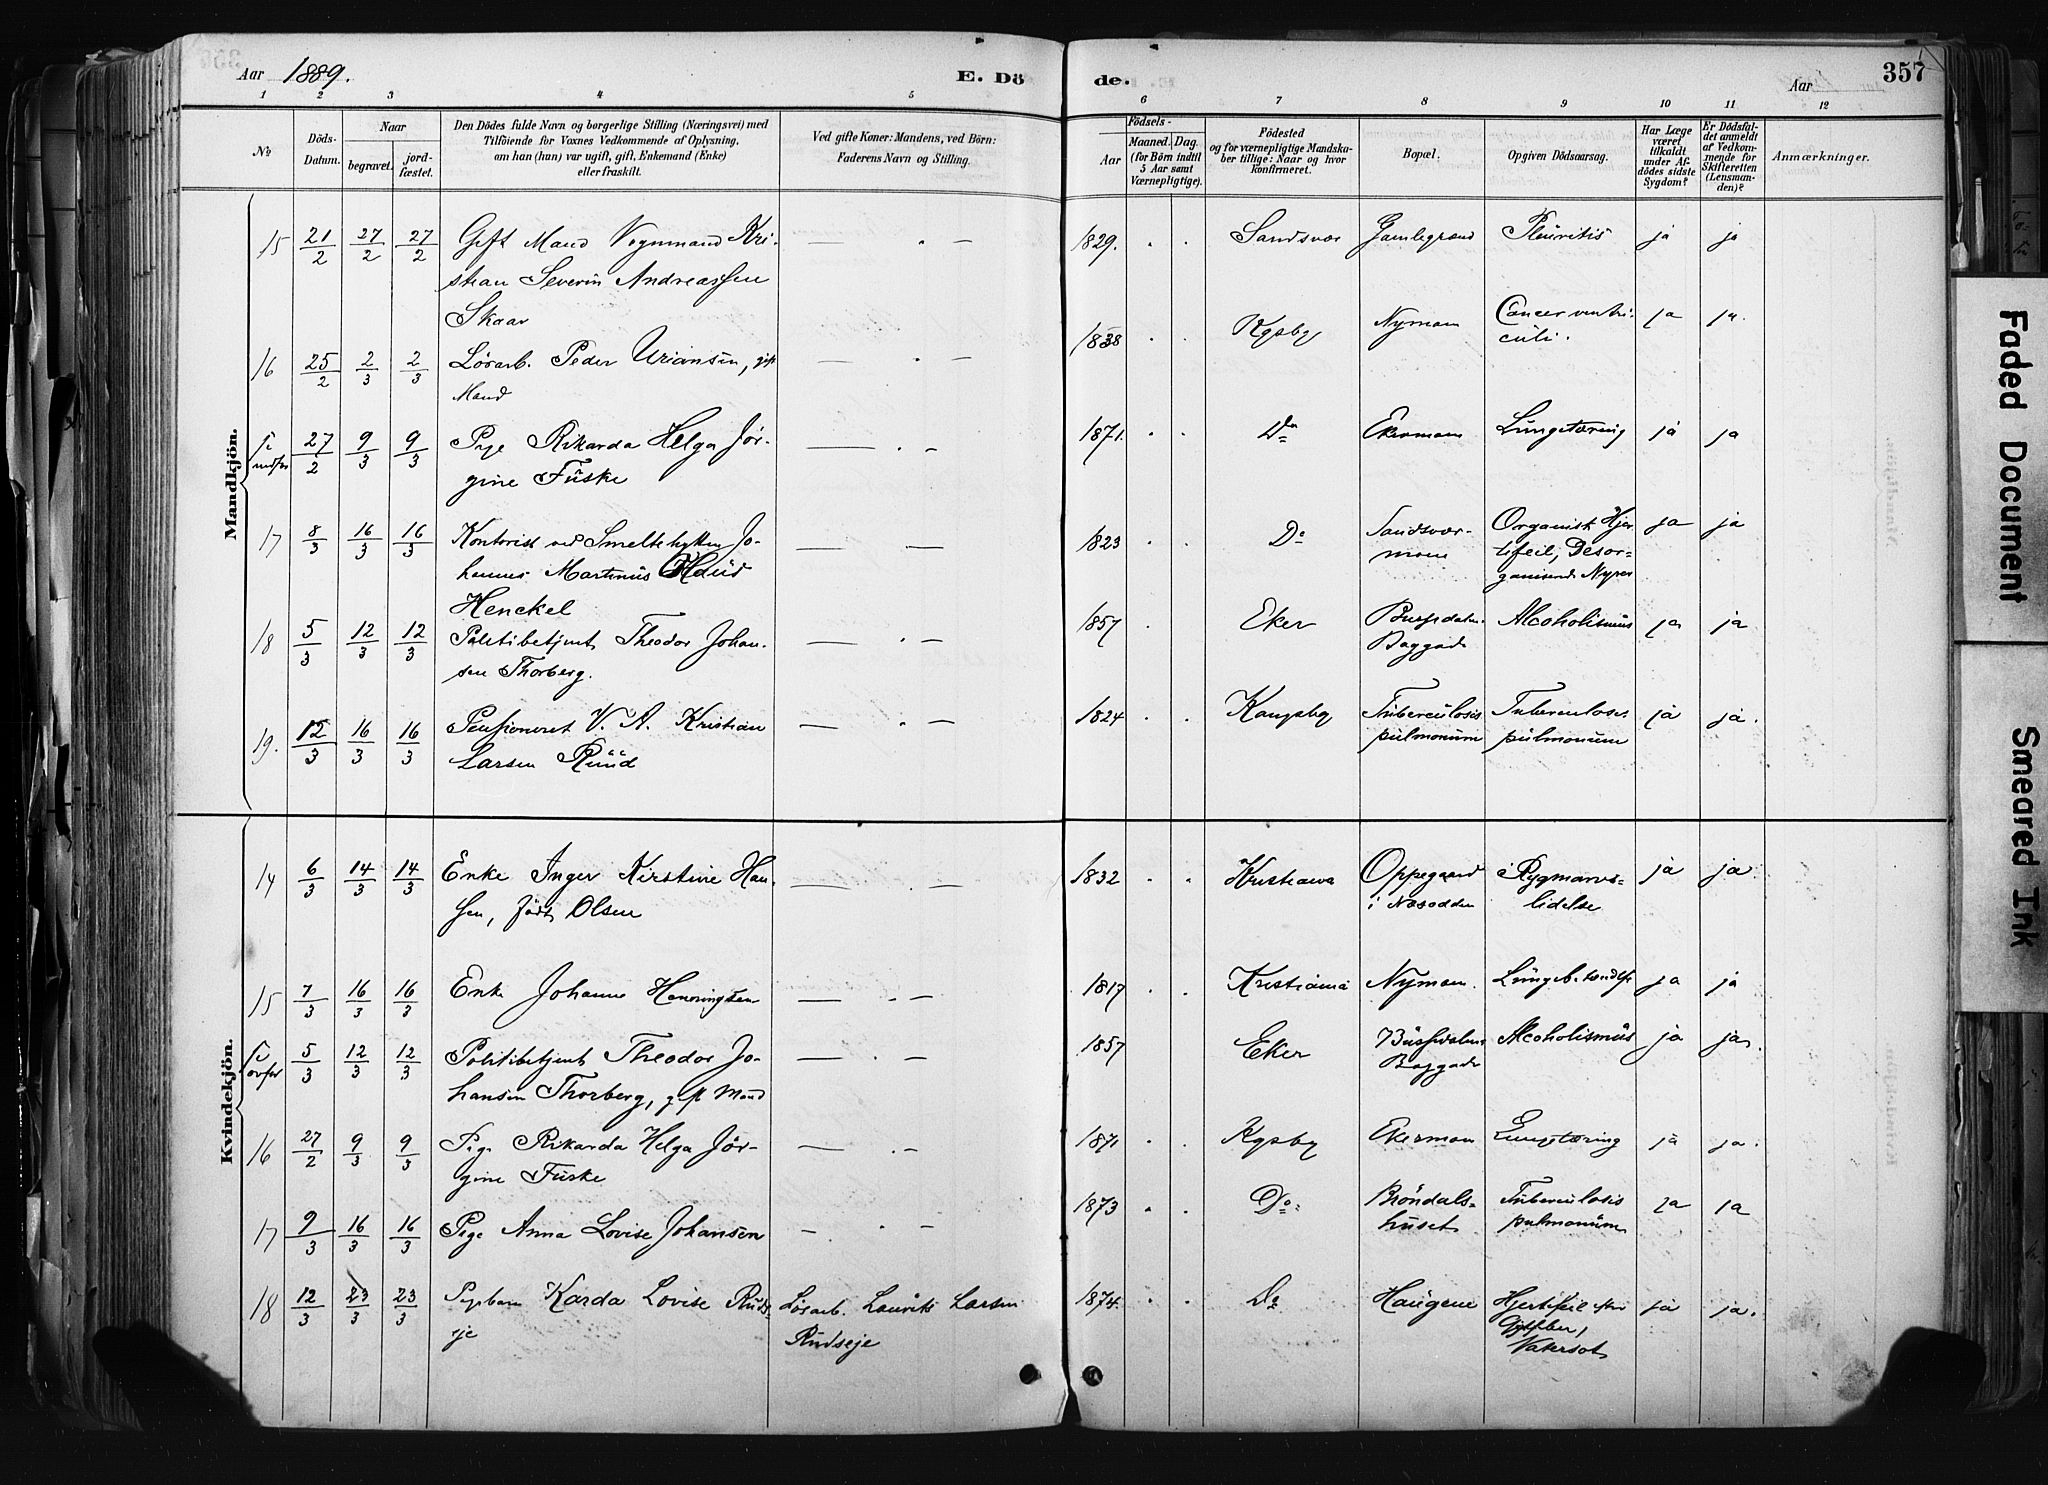 Aar 1889. E. Dö de. Aar 357
1 2 3 4 5 6 7 8 9 10 11 12
No
Döds-Datum.
Naar
begravet.
jord-fæstet.
Den Dödes fulde Navn og borgerlige Stilling (Næringsvei) med
Tilföiende for Voxnes Vedkommende af Oplysning,
om han (hun) var ugift, gift, Enkemand (Enke)
eller fraskilt.
Ved gifte Koner: Mandens, ved Börn:
Faderens Navn og Stilling.
Födsels-
Aar
Maaned. Dag.
(for Börn indtil
5 Aar samt
Værnepligtige).
Födested
og for værnepligtige Mandska-
ber tillige: Naar og hvor
konfirmeret.
Bopæl.
Opgiven Dödsaarsag.
Har Læge
været
tilkaldt
under Af-
dödes sidste
Sygdom?
Er Dödsfal-
det anmeldt
af Vedkom-
mende for
Skifteretten
(Lensman-
den)?
Anmærkninger.
Mandkjön.
15 21/2 27/2 27/2 Gift Mand Vognmand Kri- 1829. Sandsvær Gamlegrænd Pleuritis ja ja
stian Severin Andreassen
Skaar
16 25/2 2/3 2/3 Lösarb. Peder Uriansen, gift 1838 Kgsby Nymoen Cancer ventri- ja ja.
Mand culi.
27/2 9/3 9/3 Pige Rikarda Helga Jör- 1871. Do Ekermoen Lungetæring ja ja
gine Fuske
17 8/3 16/3 16/3 Kontorist ved Smeltehytten Jo- 1823 Do Sandsvær- Organisk Hjer- ja ja
hannes Martinus Haüd moen tefeil, Desor-
Henckel ganiserede Nyrer
18 5/3 12/3 12/3 Politibetjent Theodor Johan- 1857 Eker Alcoholismus ja ja
sen Thorberg. Baggade
19. 12/3 16/3 16/3 Pensioneret V. A. Kristian 1824 Kongsby Tuberculosis Tuberculosis ja ja.
Larsen Rüüd pulmonum pulmonum
Kvindekjön.
14 6/3 14/3 14/3 Enke Inger Kirstine Han- 1832 Kristiania Oppegaard Rygmarvs- ja ja.
sen, född Olsen i Næsodden lidelse
15 7/3 16/3 16/3 Enke Johanne Henningsen 1817 Kristiania Nymoen. Lungebetændelse ja ja
5/3 12/3 12/3 Politibetjent Theodor Jo- 1857 Eker Alcoholismus ja ja.
hansen Thorberg, gift Mand Baggade
16 27/2 9/3 9/3 Pige Rikarda Helga Jör- 1871 Kgsby Ekermoen Lungetæring ja ja.
gine Fuske
17 9/3 16/3 16/3 Pige Anna Lovise Johansen 1873 Do Bröndals- Tuberculosis ja ja
huset pulmonum
18 12/3 23/3 23/3 Pigebarn Karda Lovise Ruds- Lösarb. Laurits Larsen 1874. Do Haugene Hjertefeil ja ja.
eje Rudseje
Vatersot
Faded Document
Smeared Ink